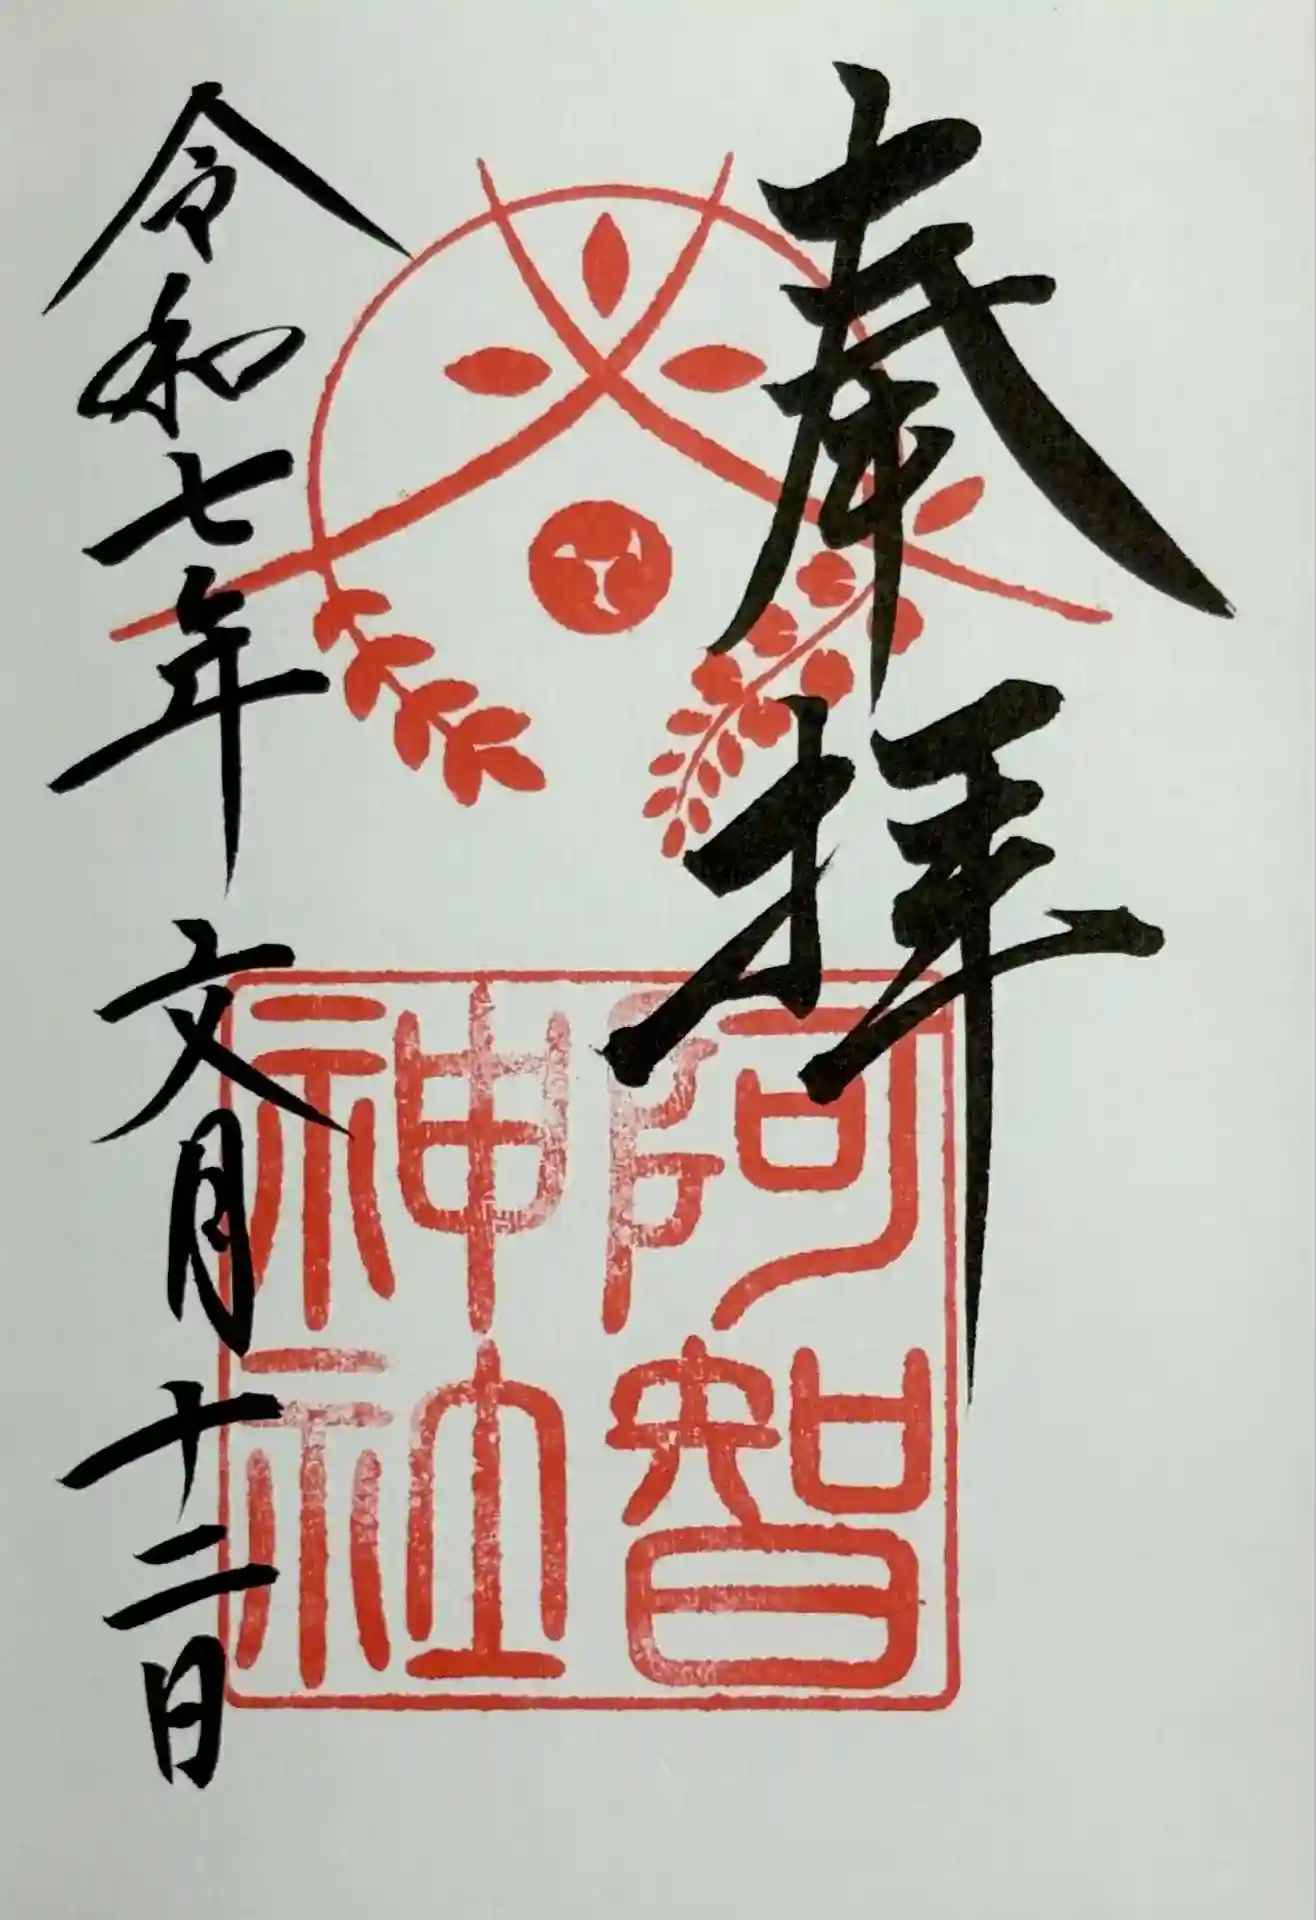 奉拝
阿智
神社
令和七年 文月十二日